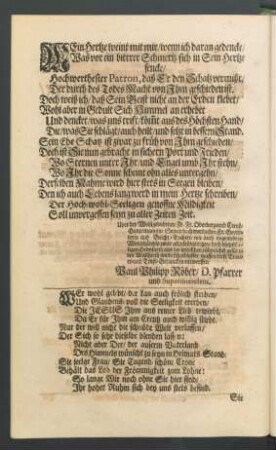 MEin Hertze weint mit mir/ wenn ich daran gedencke/
Was vor ein bittrer Schmertz sich in Sein Hertze
sencke/
Hochwerthester Patron, daß Er den Schatz vermißt/
Der durch des Todes Macht von Ihm geschieden ist.
Doch weiß ich/ daß Sein Geist nicht an der Erden klebet/
Wohl aber in Gedult Sich Himmel an erhebet
Und dencket/ was uns trifft kömt aus des Höchsten Hand/
Die/ was Sie schlägt/ auch heilt/ und setzt in bessern Stand.
Sein Ehe Schatz ist zwar zu früh von Ihm geschieden/
Doch ist Sie nun gebracht in sichern Port und Frieden/
Wo Sternen unter Ihr und Engel umb Ihr stehn/
Wo Ihr die Sonne scheint ohn alles untergehn/
Derselben Nahme wird hier stets in Seegen bleiben/
Den ich auch Lebens lang werd in mein Hertze schreiben/
Der Hoch-wohl-Seeligen genoßne Mildigkeit
Soll unvergessen seyn zu aller Zeiten Zeit.
Paul Philipp Röber/ D. Pfarrer
und Superintendens.
WEr wohl gelebt/ der kan auch frölich sterben/
Und Glaubens-voll die Seeligkeit ererben/
Die JESUS Ihm aus einer Lieb erwirbt/
Da Er für Ihm am Creutz auch willig stirbt.
Nur der will nicht die schnöde Welt verlassen/
Der Sich so sehr dieselbe blenden lassen:
Nicht aber Der/ der ausserm Vaterland
Des Himmels wünscht zu seyn in Heimats Stand.
Sie seelge Frau/ Sie Tugend-schöne Crone
Behält das Lob der Frömmigkeit zum Lohne:
So lange Wir noch ohne Sie hier sind/
Ihr hoher Ruhm sich bey uns stets befind.
Sie